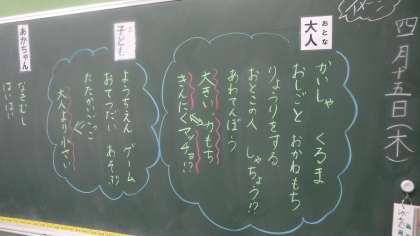 四月十五日(木)
おとな
大人
かいしゃ くるま
おしごと おかねもち
りょうりをする
おとこの人 しゃちょう!?
あわてんぼう
大きい 力もち
きんにくマッチョ!?
子ども
ようちえん ゲーム
おてつだい あそぶ
たたかいごっこ
大人より小さい
あかちゃん
なきむし
はいはい